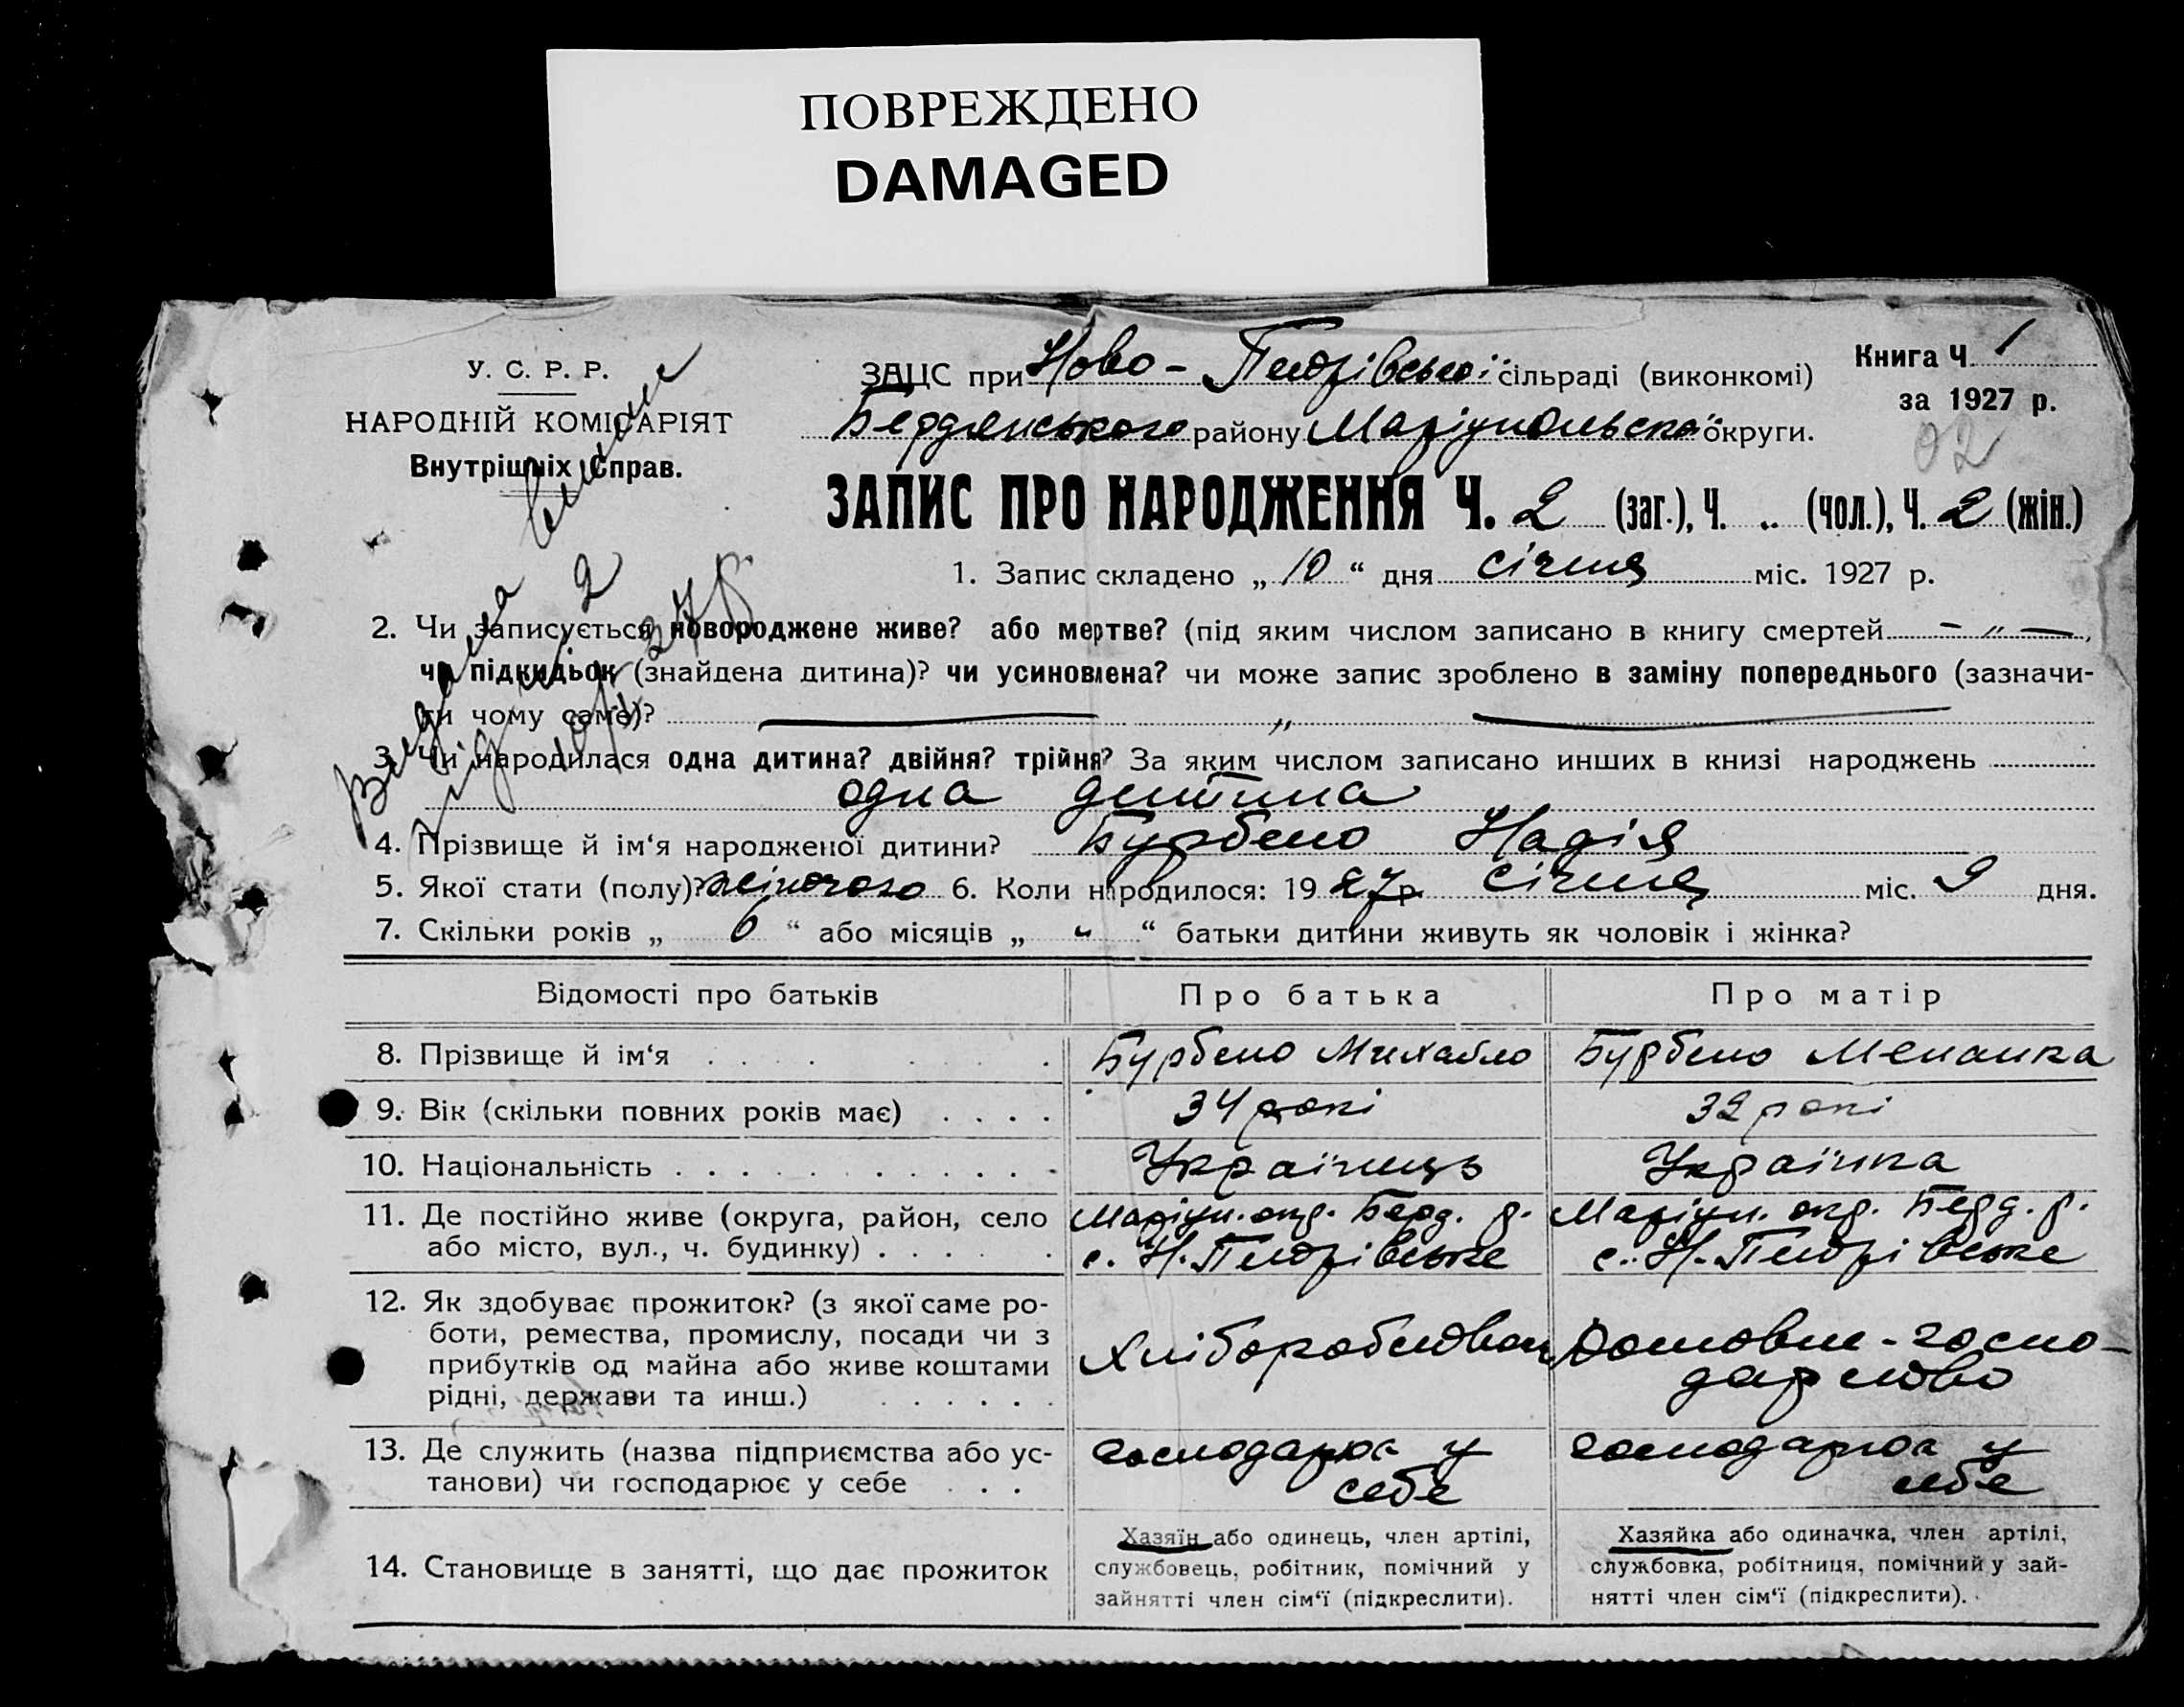 ПОВРЕЖДЕНО
DAMAGED
У. С. Р. Р.
НАРОДНІЙ КОМІСАРІЯТ
Внутрішніх Справ.
ЗАЦС при Ново-Петрівської сільраді (виконкомі)
Бердянського району Маріупольської округи.
Книга Ч. 1
за 1927 р.
92
ЗАПИС ПРО НАРОДЖЕННЯ Ч. 2 (заг.), Ч. „ (чол.), Ч. 2 (жін.)
1. Запис складено „ 10 “ дня січня міс. 1927 р.
2. Чи записується новороджене живе? або мертве? (під яким числом записано в книгу смертей - „ - ,
чи підкидьок (знайдена дитина)? чи усиновлена? чи може запис зроблено в заміну попереднього (зазначи-
ти чому саме)? — „ —
3. Чи народилася одна дитина? двійня? трійня? За яким числом записано инших в книзі народжень
одна дитина
4. Прізвище й ім‘я народженої дитини? Бурбело Надія
5. Якої стати (полу)? жіночого 6. Коли народилося: 1927 р. січня міс. 9 дня.
7. Скільки років „ 6 “ або місяців „ „ “ батьки дитини живуть як чоловік і жінка?
Видана виписка
2
27 р.
Відомості про батьків Про батька Про матір
8. Прізвище й ім‘я Бурбело Михайло Бурбело Меланка
9. Вік (скільки повних років має) 34 роки 32 роки
10. Національність Українець Українка
11. Де постійно живе (округа, район, село Маріуп. окр. Берд. р. Маріуп. окр. Берд. р.
або місто, вул., ч. будинку) с. Н. Петрівське с. Н. Петрівське
12. Як здобуває прожиток? (з якої саме ро-
боти, ремества, промислу, посади чи з
прибутків од майна або живе коштами
рідні, держави та инш.)
Хліборобством
Домовне-госпо-
дарство
13. Де служить (назва підприємства або ус- господарює у господарює у
танови) чи господарює у себе себе себе
14. Становище в занятті, що дає прожиток
Хазяїн або одинець, член артілі,
службовець, робітник, помічний у
зайнятті член сім‘ї (підкреслити).
Хазяйка або одиначка, член артілі,
службовка, робітниця, помічний у зай-
нятті член сім‘ї (підкреслити).